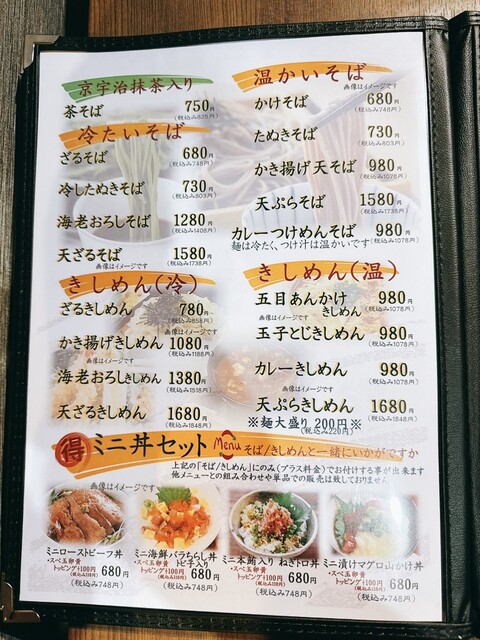 京宇治抹茶入り
茶そば 750円
(税込み825円)
冷たいそば
ざるそば 680円
(税込み748円)
冷したぬきそば 730円
(税込み803円)
海老おろしそば 1280円
(税込み1408円)
天ざるそば 1580円
画像はイメージです (税込み1738円)
きしめん(冷)
ざるきしめん 780円
(税込み858円)
画像はイメージです
かき揚げきしめん 1080円
(税込み1188円)
画像はイメージです
海老おろしきしめん 1380円
(税込み1518円)
天ざるきしめん 1680円
(税込み1848円)
温かいそば
画像はイメージです
かけそば 680円
(税込み748円)
たぬきそば 730円
(税込み803円)
かき揚げ天そば 980円
(税込み1078円)
天ぷらそば 1580円
(税込み1738円)
カレーつけめんそば 980円
(税込み1078円)
麺は冷たく、つけ汁は温かいです
きしめん(温)
五目あんかけきしめん 980円
(税込み1078円)
画像はイメージです
玉子とじきしめん 980円
(税込み1078円)
カレーきしめん 980円
(税込み1078円)
画像はイメージです
天ぷらきしめん 1680円
(税込み1848円)
※麺大盛り 200円※
(税込み220円)
得 ミニ丼セット Menu そば/きしめんと一緒にいかがですか
上記の「そば/きしめん」にのみ(プラス料金)でお付けする事が出来ます
他メニューとの組み合わせや単品での販売は致しておりません
画像はイメージです
ミニローストビーフ丼
・スペ玉卵黄
トッピング+100円
680円
(税込み748円)
ミニ海鮮バラちらし丼
トビ子入り
・スペ玉卵黄
トッピング+100円
680円
(税込み748円)
ミニ本鮪入り ねぎトロ丼
・スペ玉卵黄
トッピング+100円
680円
(税込み748円)
ミニ漬けマグロ山かけ丼
・スペ玉卵黄
トッピング+100円
680円
(税込み748円)